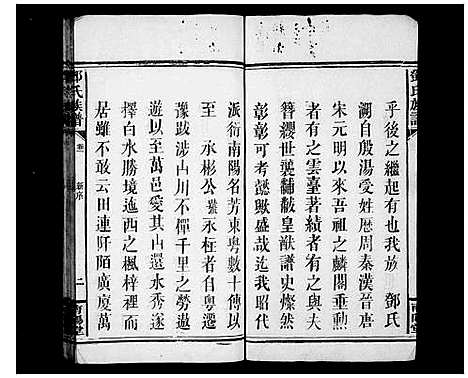 鄧氏族譜
乎後之繼起有也我族 鄧氏
溯自殷湯受姓歷周秦漢晉唐
宋元明以來吾祖之麟閣垂勳
者有之雲臺著績者有之與夫
簪纓世襲黼黻皇猷譜史燦然
彰彰可考懿歟盛哉迄我昭代
派衍南陽名芳東粵數十傳以
至 永彬公業永桂者自粵遷
豫跋涉山川不憚千里之勞遨
遊以至萬邑愛其山還水秀遂
擇白水勝境迤西之楓梓裡而
居雖不敢云田連阡陌廣廈萬
鄧氏族譜
卷一 新序 二
南陽堂